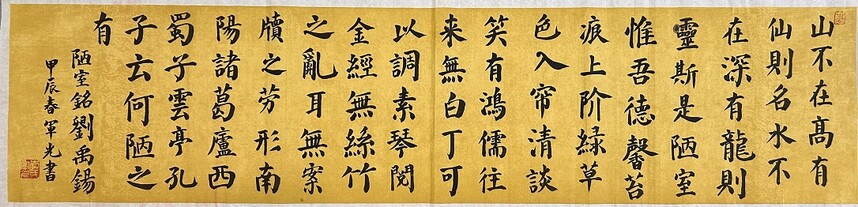 山不在高有
仙則名水不
在深有龍則
靈斯是陋室
惟吾德馨苔
痕上阶緑草
色入帘清談
笑有鴻儒往
来無白丁可
以調素琴閱
金經無絲竹
之亂耳無案
牘之劳形南
陽諸葛廬西
蜀子雲亭孔
子云何陋之
有
陋室銘劉禹錫
甲辰春軍光書